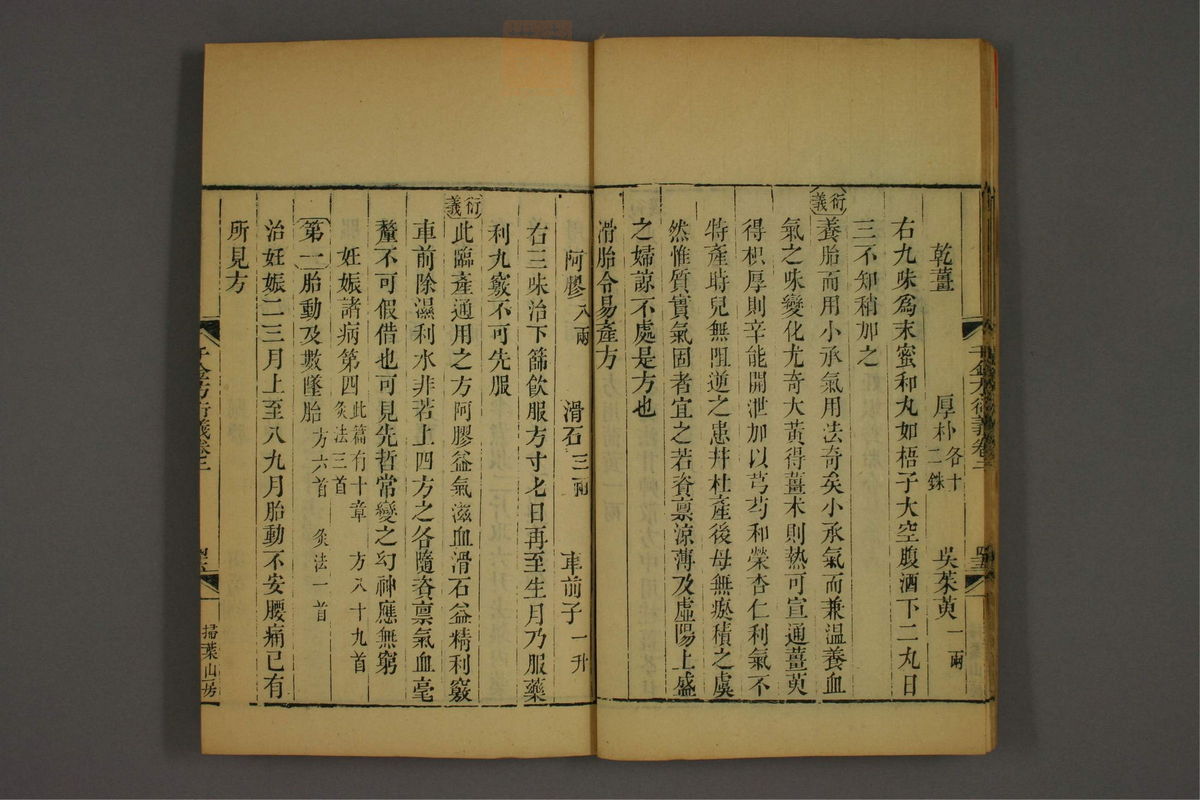 乾薑 厚朴各十二銖 吳茱萸一兩
右九味為末蜜和丸如梧子大空腹酒下二丸日
三不知稍加之
衍義養胎而用小承氣用法奇矣小承氣而兼溫養血
氣之味變化尤奇大黃得薑朮則熱可宣通薑萸
得枳厚則辛能開泄加以芎芍和榮杏仁利氣不
特產時兒無阻逆之患幷杜產後母無瘀積之虞
然惟質實氣固者宜之若資禀涼薄及虛陽上盛
之婦諒不處是方也
滑胎令易產方
阿膠八兩 滑石三兩 車前子一升
右三味治下篩飲服方寸匕日再至生月乃服藥
利九竅不可先服
衍義此臨產通用之方阿膠益氣滋血滑石益精利竅
車前除濕利水非若上四方之各隨資禀氣血毫
釐不可假借也可見先哲常變之幻神應無窮
妊娠諸病第四此篇有十章 方八十九首 灸法三首
第一胎動及數墮胎方六首 灸法一首
治妊娠二三月上至八九月胎動不安腰痛已有
所見方
千金方衍義卷二
掃葉山房